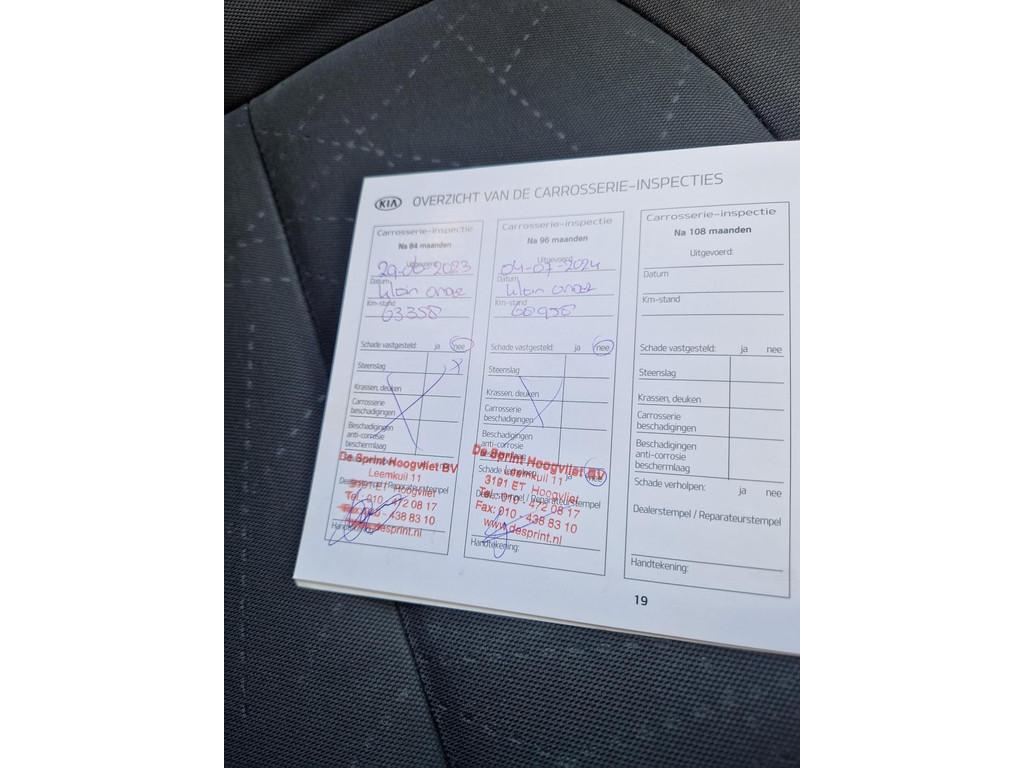 KIA OVERZICHT VAN DE CARROSSERIE-INSPECTIES
Carrosserie-inspectie
Na 84 maanden
Uitgevoerd:
29-06-2023
Datum
klein onde
Km-stand
63358
Schade vastgesteld: ja nee
Steenslag X
Krassen, deuken
Carrosserie
beschadigingen
Beschadigingen
anti-corrosie
beschermlaag
De Sprint Hoogvliet BV
Leemkuil 11
Dealerstempel / Reparateurstempel
3191 ET Hoogvliet
Tel.: 010 - 472 08 17
Fax: 010 - 438 83 10
www.desprint.nl
Carrosserie-inspectie
Na 96 maanden
Uitgevoerd:
04-07-2024
Datum
klein onde
Km-stand
Schade vastgesteld: ja nee
Steenslag
Krassen, deuken
Carrosserie
beschadigingen
Beschadigingen
anti-corrosie
De Sprint Hoogvliet BV
Schade verholpen: ja nee
Leemkuil 11
3191 ET Hoogvliet
Dealerstempel / Reparateurstempel
Tel.: 010 - 472 08 17
Fax: 010 - 438 83 10
www.desprint.nl
Handtekening:
Carrosserie-inspectie
Na 108 maanden
Uitgevoerd:
Datum
Km-stand
Schade vastgesteld: ja nee
Steenslag
Krassen, deuken
Carrosserie
beschadigingen
Beschadigingen
anti-corrosie
beschermlaag
Schade verholpen: ja nee
Dealerstempel / Reparateurstempel
Handtekening:
19